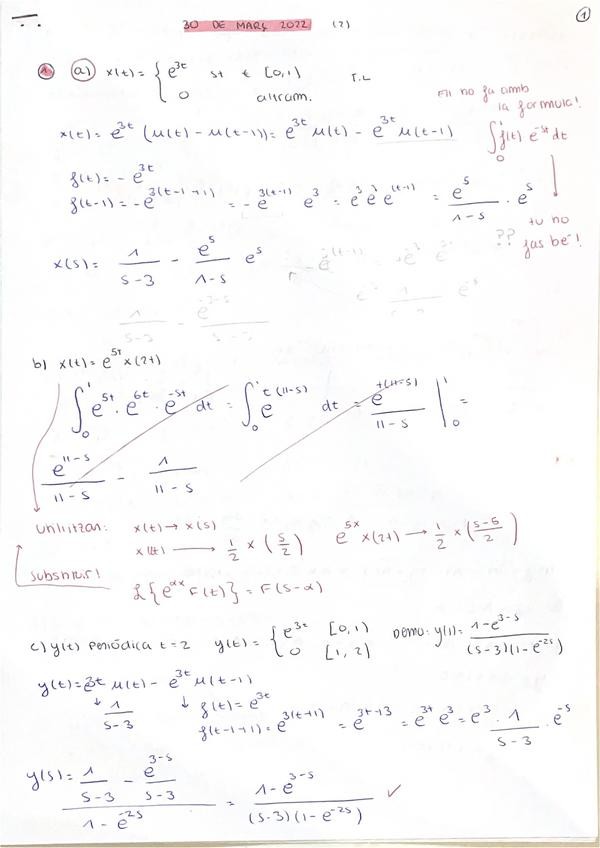 30 DE MARÇ 2022 (2)
1
1 a) x(t) = { e^{3t} si t ∈ [0,1)
0 altram. T.L
x(t) = e^{3t} (u(t) - u(t-1)) = e^{3t} u(t) - e^{3t} u(t-1)
f(t) = - e^{3t}
f(t-1) = - e^{3(t-1+1)} = - e^{3(t-1)} e^3 = e^3 e^3 e^{(t-1)} = e^s / (1-s) · e^s
la formula!
∫_0^1 f(t) e^{-st} dt
?? tu no
fas bé!
x(s) = 1/(s-3) - e^s/(1-s) e^s
1/(s-3) - e^{-3-s}
b) x(t) = e^{5t} x(2t)
∫_0^1 e^{5t} · e^{6t} · e^{-st} dt = ∫_0^1 e^{t(11-s)} dt = e^{t(11-s)}/(11-s) |_0^1 =
e^{11-s}/(11-s) - 1/(11-s)
Utilitzar: x(t) → x(s)
x(2t) → 1/2 x (s/2) e^{5x} x(2t) → 1/2 x ((s-5)/2)
Substituir!
L{e^{αx} F(t)} = F(s-α)
c) y(t) periòdica t=2 y(t) = { e^{3t} [0,1)
0 [1,2) Demo: y(s) = (1-e^{3-s})/((s-3)(1-e^{-2s}))
y(t) = e^{3t} u(t) - e^{3t} u(t-1)
↓ 1/(s-3) ↓ f(t) = e^{3t}
f(t-1+1) = e^{3(t+1)} = e^{3t+3} = e^{3t} e^3 = e^3 · 1/(s-3) · e^{-s}
y(s) = (1/(s-3) - e^{3-s}/(s-3))/(1-e^{-2s}) = (1-e^{3-s})/((s-3)(1-e^{-2s})) ✓